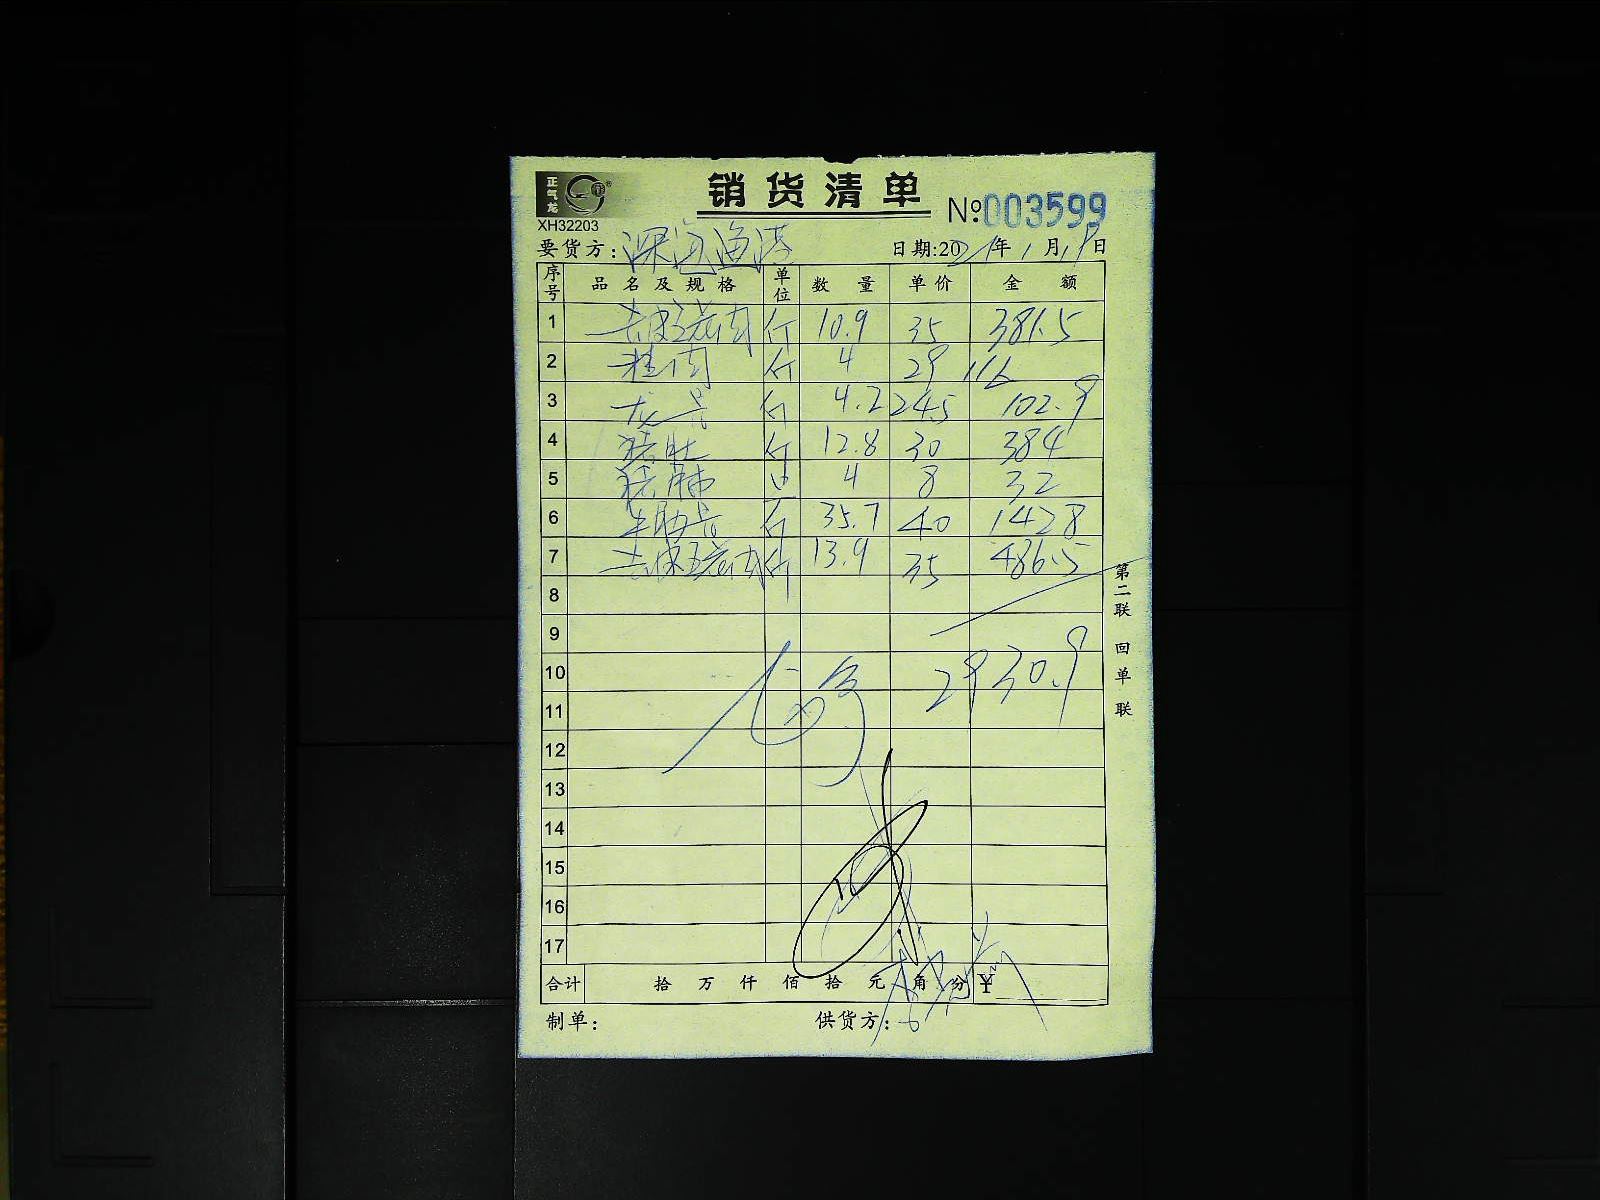 正气龙
XH32203
销货清单
№003599
要货方：深海渔港 日期:2021年1月19日
序号 品名及规格 单位 数量 单价 金额
1 去皮五花肉 斤 10.9 35 381.5
2 斤 4 29 116
3 龙骨 斤 4.2 24.5 102.9
4 猪肚 斤 12.8 30 384
5 猪肺 4 8 32
6 斤 35.7 40 1428
7 去皮五花肉 斤 13.9 35 486.5
8
9
10 2930.9
11
12
13
14
15
16
17
合计 拾 万 仟 佰 拾 元 角 分 ¥
制单： 供货方：
第二联 回单联